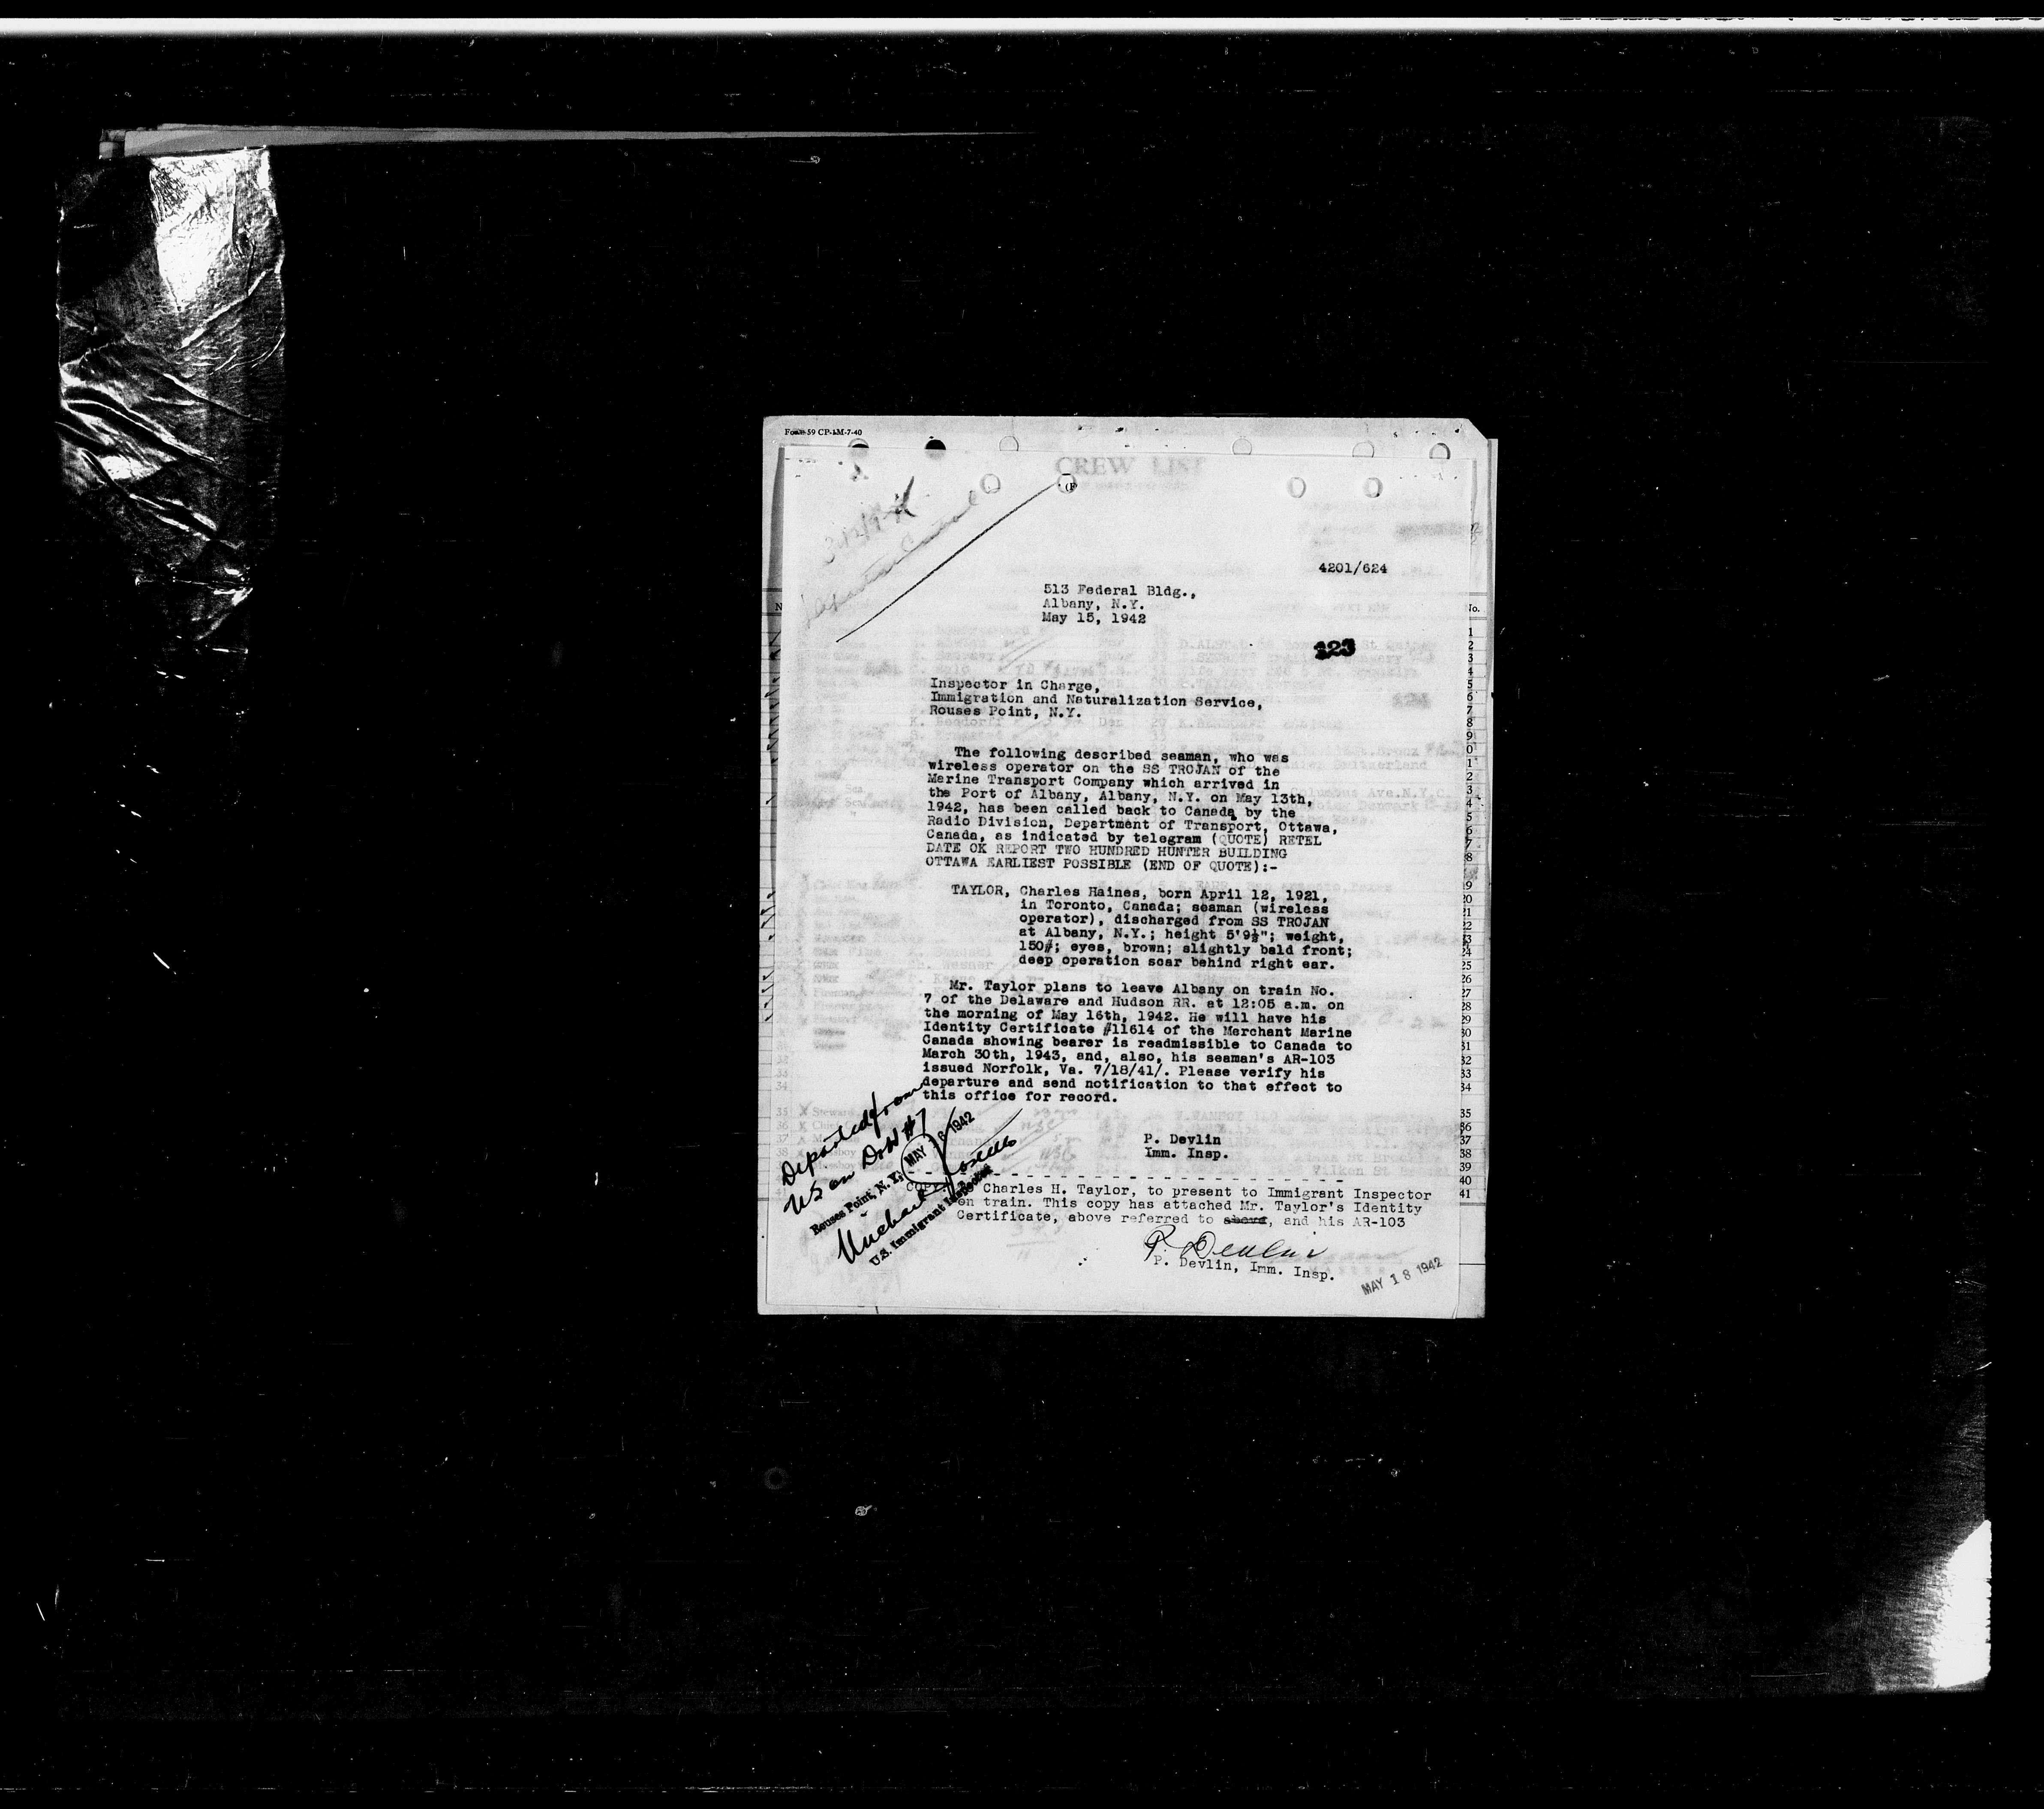 CREW LIST
4201/624
513 Federal Bldg.,
Albany, N.Y.
May 15, 1942
123
Inspector in Charge,
Immigration and Naturalization Service,
Rouses Point, N.Y.
The following described seaman, who was
wireless operator on the SS TROJAN of the
Marine Transport Company which arrived in
the Port of Albany, Albany, N.Y. on May 13th,
1942, has been called back to Canada by the
Radio Division, Department of Transport, Ottawa,
Canada, as indicated by telegram (QUOTE) RETEL
DATE OK REPORT TWO HUNDRED HUNTER BUILDING
OTTAWA EARLIEST POSSIBLE (END OF QUOTE):-
TAYLOR, Charles Haines, born April 12, 1921,
in Toronto, Canada; seaman (wireless
operator), discharged from SS TROJAN
at Albany, N.Y.; height 5'9½"; weight,
150#; eyes, brown; slightly bald front;
deep operation scar behind right ear.
Mr. Taylor plans to leave Albany on train No.
7 of the Delaware and Hudson RR. at 12:05 a.m. on
the morning of May 16th, 1942. He will have his
Identity Certificate #11614 of the Merchant Marine
Canada showing bearer is readmissible to Canada to
March 30th, 1943, and, also, his seaman's AR-103
issued Norfolk, Va. 7/18/41/. Please verify his
departure and send notification to that effect to
this office for record.
P. Devlin
Imm. Insp.
Departed from
US on D&H #7
MAY 16 1942
Rouses Point, N.Y.
Michael
U.S. Immigrant Inspector
COPY
Charles H. Taylor, to present to Immigrant Inspector
on train. This copy has attached Mr. Taylor's Identity
Certificate, above referred to above, and his AR-103
P. Devlin
P. Devlin, Imm. Insp.
MAY 18 1942